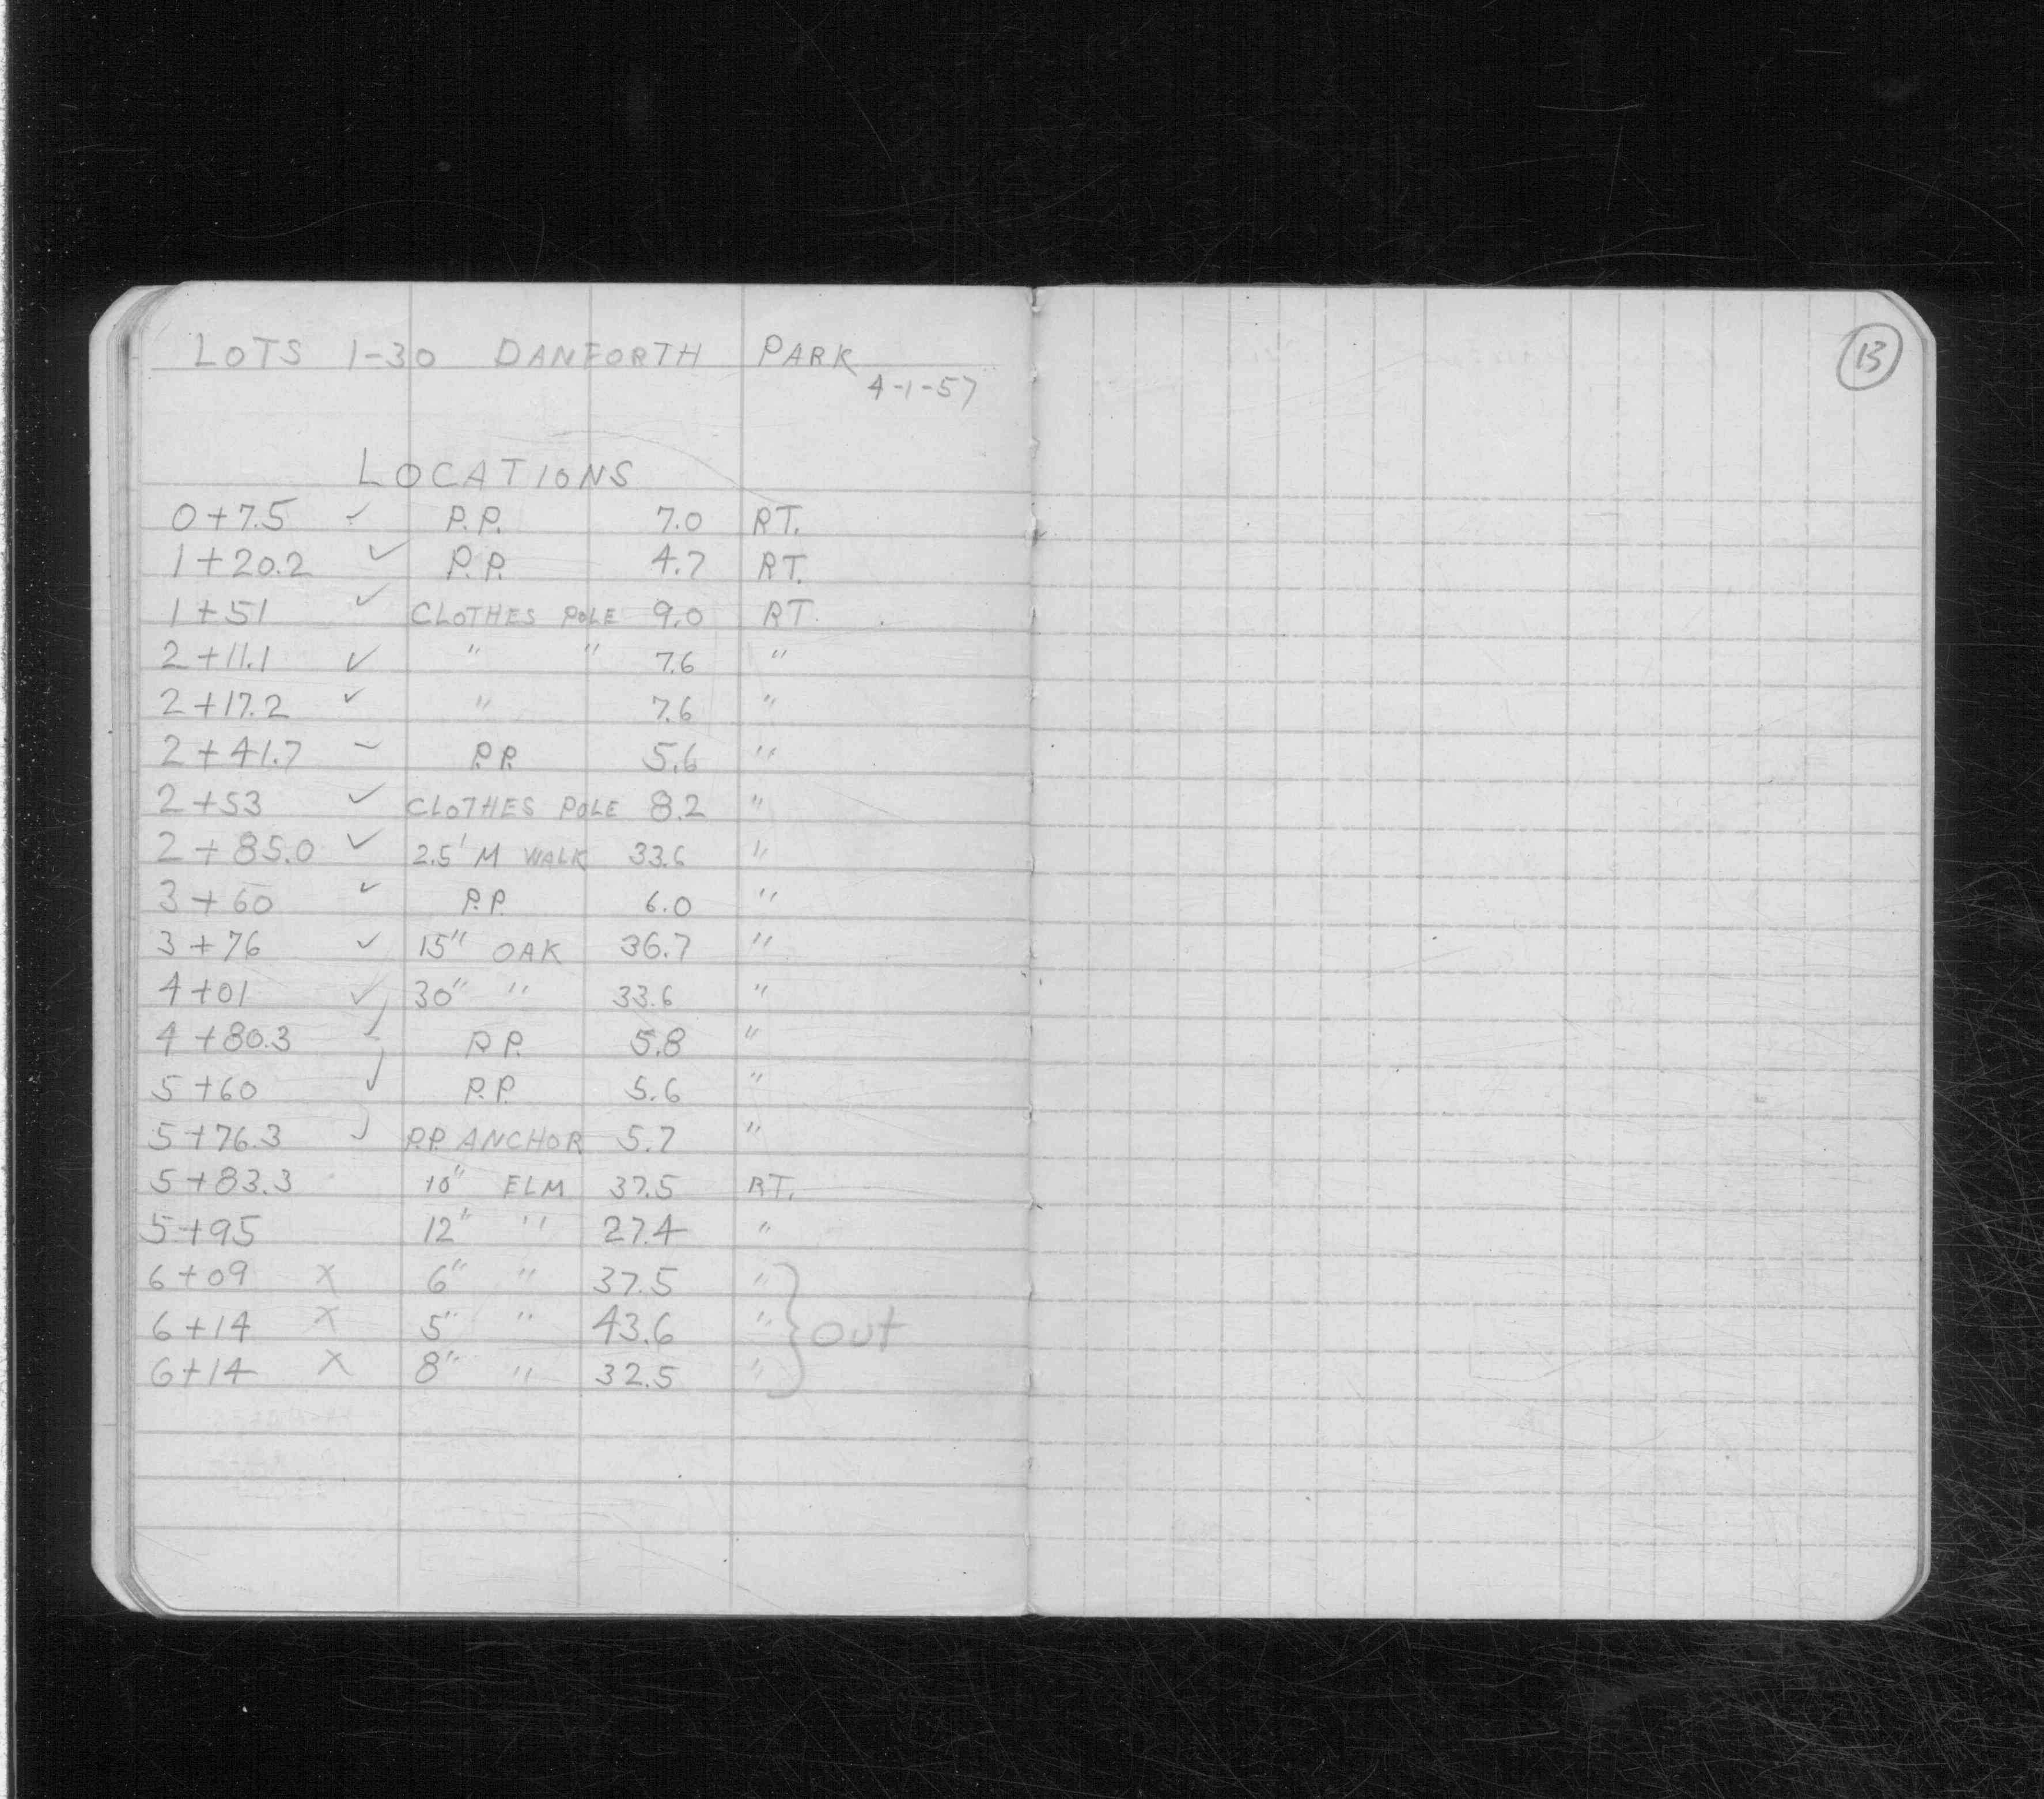 LOTS 1-30 DANFORTH PARK
4-1-57
13
LOCATIONS
0+7.5 ✓ P.P. 7.0 RT.
1+20.2 ✓ P.P. 4.7 RT.
1+51 ✓ CLOTHES POLE 9.0 RT.
2+11.1 ✓ " " 7.6 "
2+17.2 ✓ " 7.6 "
2+41.7 ✓ P.P. 5.6 "
2+53 ✓ CLOTHES POLE 8.2 "
2+85.0 ✓ 2.5' M WALK 33.6 "
3+60 ✓ P.P. 6.0 "
3+76 ✓ 15" OAK 36.7 "
4+01 ✓ 30" " 33.6 "
4+80.3 ✓ P.P. 5.8 "
5+60 ✓ P.P. 5.6 "
5+76.3 ✓ P.P. ANCHOR 5.7 "
5+83.3 10" ELM 37.5 RT.
5+95 12" " 27.4 "
6+09 X 6" " 37.5 "
6+14 X 5" " 43.6 " } OUT
6+14 X 8" " 32.5 "